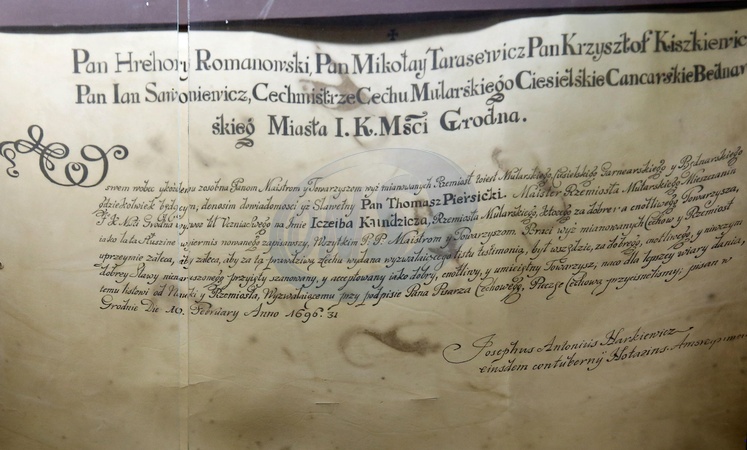 Pan Hrehory Romanowski, Pan Mikołay Tarasewicz Pan Krzysztof Kiszkiewic
Pan Ian Sawoniewicz, Cechmistrze Cechu Mularskiego Ciesielskie Cancarskie Bednar
skieg Miasta I. K. Mści Grodna.
wszem wobec y każdemu zosobna Panom Maistrom y Towarzyszom wyż mianowanych Rzemiosł Mularskiego Ciesielskiego Garncarskiego y Bednarskiego
gdziekolwiek będącym, donosim do wiadomości yż Sławetny Pan Thomasz Piersicki. Maister Rzemiosła Mularskiego Mieszczanin
J. K. Mści Grodna na Imie Iczeiba Kaundzicza, Rzemiosła Mularskiego, za dobre a cnotliwego Towarzysza,
iako lata Słuszne wiernis Wszytkim P. P. Maistrom y Towarzyszom Braci wyż mianowanych Cechow y Rzemiosł
uprzeymie zaleca, aby za tą prawdziwą Cechu wydaną listu testimonią, był wszędzie, za dobrego, cnotliwego, y
dobrey Sławy przyięty szanowany, y acceptowany iako dobry, cnotliwy, y umieiętny Towarzysz, dla lepszey wiary dania,
temu listowi od Nauki y Rzemiosła, Wyzwalniącemu przy podpisie Pana Pisarza Cechowego, Pieczęć Cechową przycisnelismy; pisan w
Grodnie Die 10. February Anno 1696. 31
Josephus Antonius Harkiewicz
eiusdem contubernij